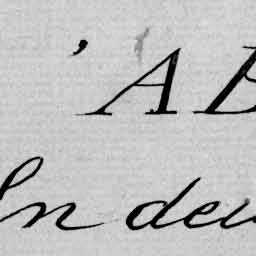 ' A B
In deu